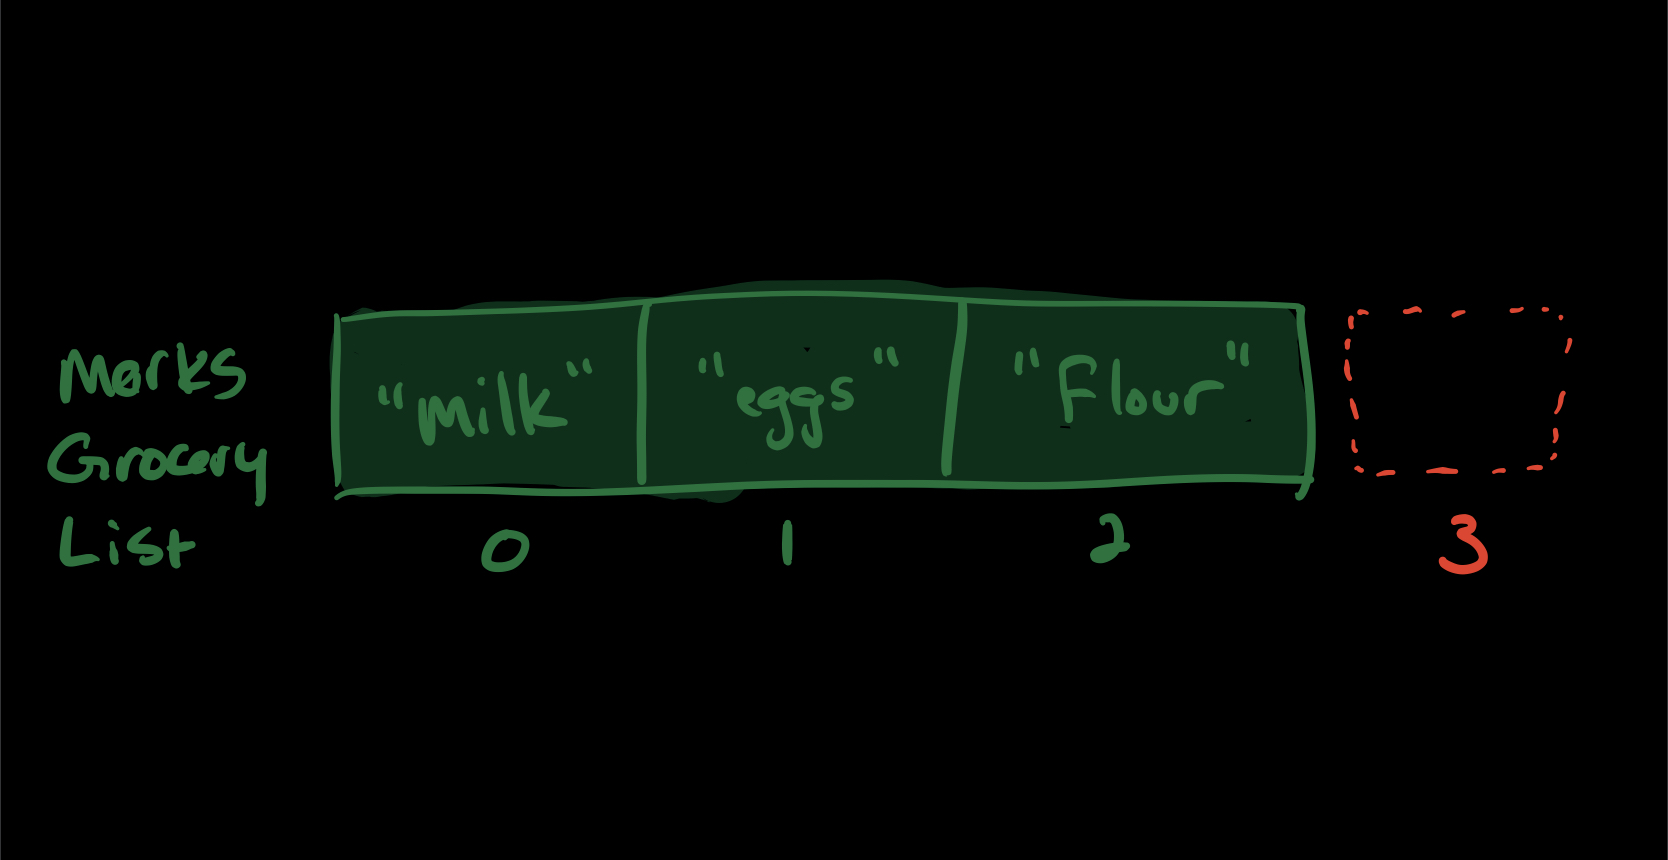 Marks
Grocery
List
"milk" "eggs" "Flour"
0 1 2 3